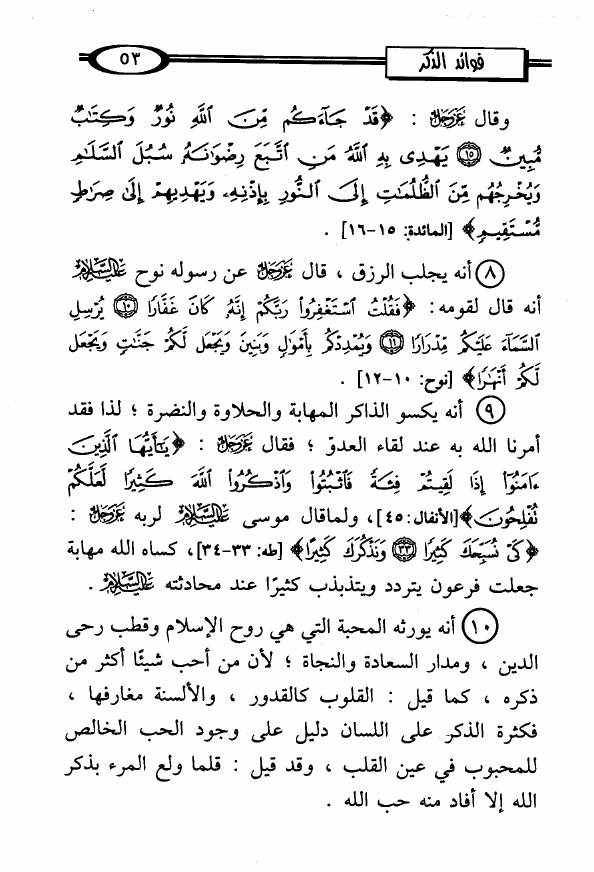 فوائد الذكر
٥٣
وقال عز وجل : ﴿قَدْ جَآءَكُم مِّنَ ٱللَّهِ نُورٌ وَكِتَٰبٌ
مُّبِينٌ ١٥ يَهْدِى بِهِ ٱللَّهُ مَنِ ٱتَّبَعَ رِضْوَٰنَهُۥ سُبُلَ ٱلسَّلَٰمِ
وَيُخْرِجُهُم مِّنَ ٱلظُّلُمَٰتِ إِلَى ٱلنُّورِ بِإِذْنِهِۦ وَيَهْدِيهِمْ إِلَىٰ صِرَٰطٍ
مُّسْتَقِيمٍ﴾ [المائدة: ١٥-١٦] .
٨ أنه يجلب الرزق ، قال عز وجل عن رسوله نوح عليه السلام
أنه قال لقومه: ﴿فَقُلْتُ ٱسْتَغْفِرُوا۟ رَبَّكُمْ إِنَّهُۥ كَانَ غَفَّارًا ١٠ يُرْسِلِ
ٱلسَّمَآءَ عَلَيْكُم مِّدْرَارًا ١١ وَيُمْدِدْكُم بِأَمْوَٰلٍ وَبَنِينَ وَيَجْعَل لَّكُمْ جَنَّٰتٍ وَيَجْعَل
لَّكُمْ أَنْهَٰرًا﴾ [نوح: ١٠-١٢] .
٩ أنه يكسو الذاكر المهابة والحلاوة والنضرة ؛ لذا فقد
أمرنا الله به عند لقاء العدوّ ؛ فقال عز وجل : ﴿يَٰٓأَيُّهَا ٱلَّذِينَ
ءَامَنُوٓا۟ إِذَا لَقِيتُمْ فِئَةً فَٱثْبُتُوا۟ وَٱذْكُرُوا۟ ٱللَّهَ كَثِيرًا لَّعَلَّكُمْ
تُفْلِحُونَ﴾[الأنفال:٤٥]، ولماقال موسى عليه السلام لربه عز وجل :
﴿كَىْ نُسَبِّحَكَ كَثِيرًا ٣٣ وَنَذْكُرَكَ كَثِيرًا﴾ [طه: ٣٣-٣٤]، كساه الله مهابة
جعلت فرعون يتردد ويتذبذب كثيرًا عند محادثته عليه السلام .
١٠ أنه يورثه المحبة التي هي روح الإسلام وقطب رحى
الدين ، ومدار السعادة والنجاة ؛ لأن من أحب شيئًا أكثر من
ذكره ، كما قيل : القلوب كالقدور ، والألسنة مغارفها ،
فكثرة الذكر على اللسان دليل على وجود الحب الخالص
للمحبوب في عين القلب ، وقد قيل : قلما ولع المرء بذكر
الله إلا أفاد منه حب الله .